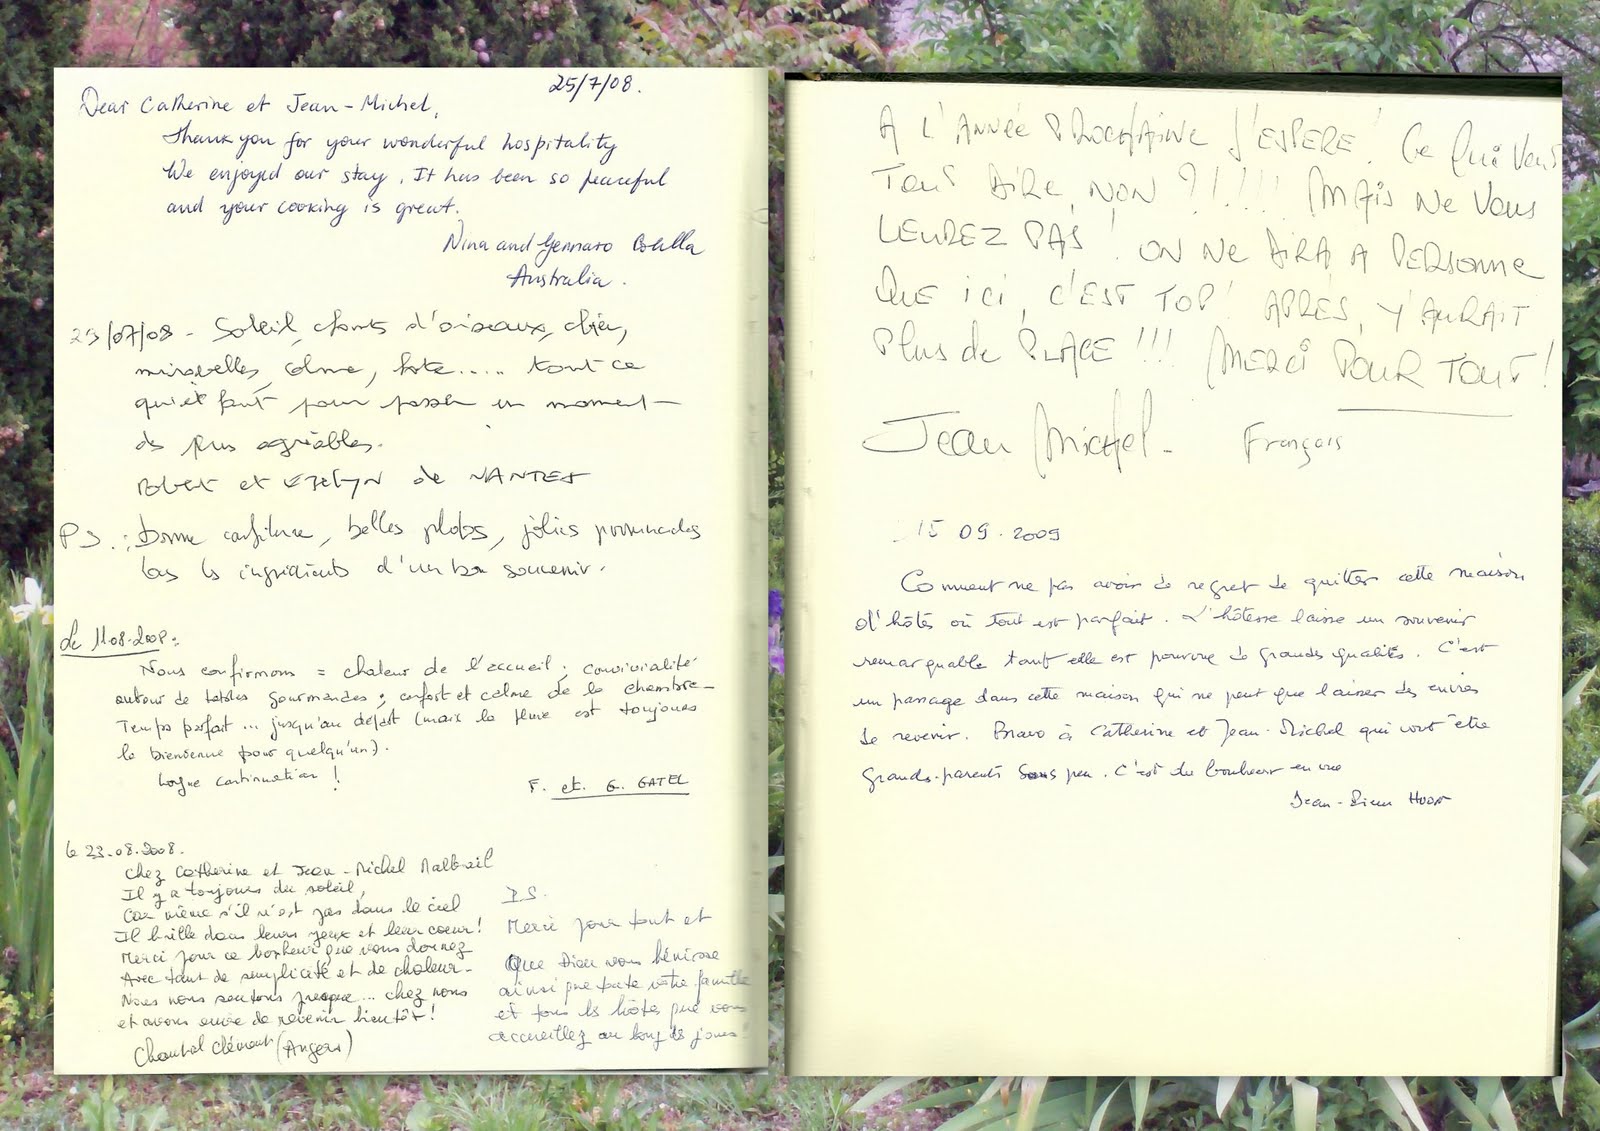 25/7/08.
Dear Catherine et Jean-Michel,
Thank you for your wonderful hospitality
We enjoyed our stay. It has been so peaceful
and your cooking is great.
Nina and Gennaro
Australia.
23/07/08 - Soleil, chants d'oiseaux,
mirabelles, calme, hôte..... tout ce
qu'il faut pour passer un moment
des plus agréables.
Robert et Evelyn de NANTES
PS.: Bonne confiture, belles photos, jolies promenades
tous les ingrédients d'un bon souvenir.
Le 11.08.2008:
Nous confirmons = chaleur de l'accueil; convivialité
autour de tables gourmandes; confort et calme de la chambre -
Temps parfait... jusqu'au départ (mais la pluie est toujours
la bienvenue pour quelqu'un).
Longue continuation !
F. et G. GATEL
le 23.08.2008.
Chez Catherine et Jean-Michel Malbreil
Il y a toujours du soleil,
Car même s'il n'est pas dans le ciel
Il brille dans leurs yeux et leur coeur !
Merci pour ce bonheur que vous donnez
Avec tant de simplicité et de chaleur -
Nous nous sentons presque... chez nous
et avons envie de revenir bientôt !
Chantal Clément (Angers)
P.S.
Merci pour tout et
Que Dieu vous bénisse
ainsi que toute votre famille
et tous les hôtes que vous
accueillez au long des jours !
A L'ANNÉE PROCHAINE J'ESPERE ! Ce Qui Veut
TOUT DIRE, NON ?!!!! MAIS Ne Vous
LEUREZ PAS ! ON Ne DIRA A PERSONNE
QUE ICI, C'EST TOP ! APRES, Y'AURAIT
Plus de PLACE !!! MERCI POUR TOUT !
Jean Michel - François
15 09.2009
Comment ne pas avoir de regret de quitter cette maison
d'hôtes où tout est parfait. L'hôtesse laisse un souvenir
remarquable tant elle est pourvue de grandes qualités. C'est
un passage dans cette maison qui ne peut que laisser des envies
de revenir. Bravo à Catherine et Jean-Michel qui vont être
Grands-parents sous peu. C'est du bonheur en vue
Jean-Pierre